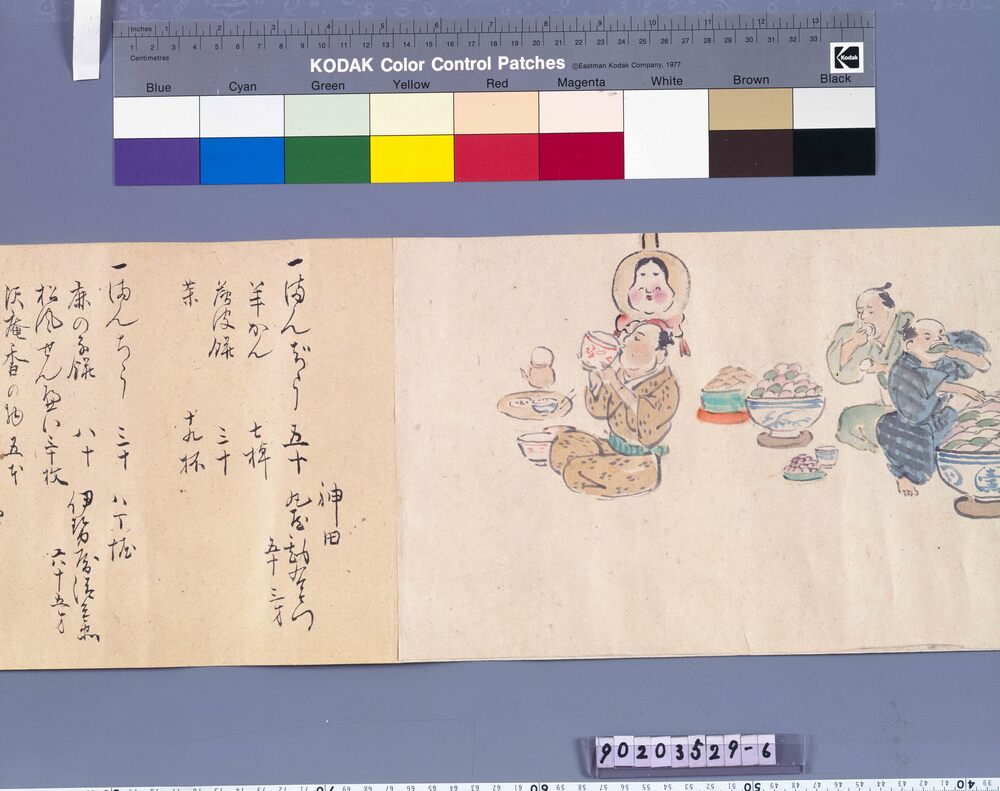 Inches 1 2 3 4 5 6 7 8 9 10 11 12 13
1 2 3 4 5 6 7 8 9 10 11 12 13 14 15 16 17 18 19 20 21 22 23 24 25 26 27 28 29 30 31 32 33
Centimetres
KODAK Color Control Patches ©Eastman Kodak Company, 1977
Kodak
Blue Cyan Green Yellow Red Magenta White Brown Black
一 まんぢう 五十
神田
丸屋勘右衛門
五十三才
羊かん 七棹
薄皮餅 三十
茶 十九杯
一 まんちう 三十
八丁堀
伊勢屋清兵衛
六十五才
鹿の子餅 八十
松風せんべい 三十枚
沢庵香の物 五本
90203529-6